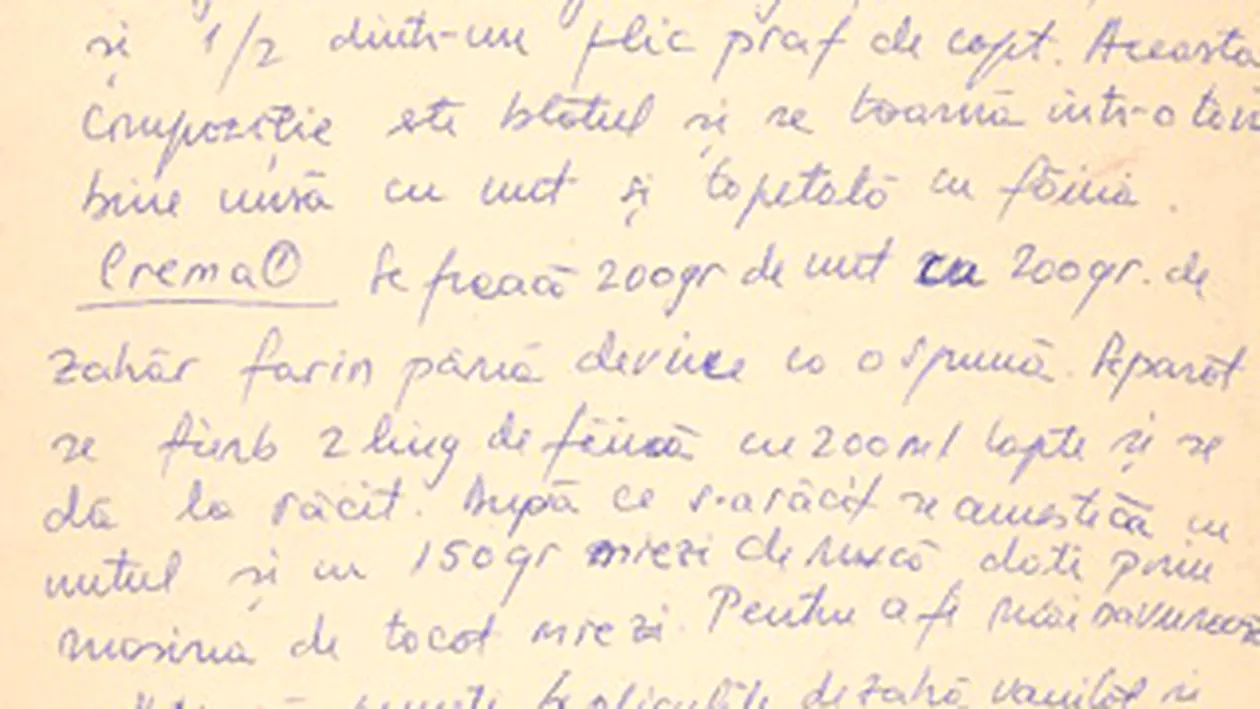 și 1/2 dintr-un plic praf de copt. Aceasta
Compoziție este blatul și se toarnă într-o
bine unsă cu unt și tapetată cu făină.
Crema ① Se freacă 200gr de unt cu 200gr. de
zahăr farin până devine ca o spumă. Separat
se fierb 2 ling de făină cu 200 ml lapte și se
dă la răcit. După ce s-a răcit se amestecă cu
untul și cu 150gr miezi de nucă dați prin
mașina de tocat miezi. Pentru a fi mai
de zahăr vanilat și